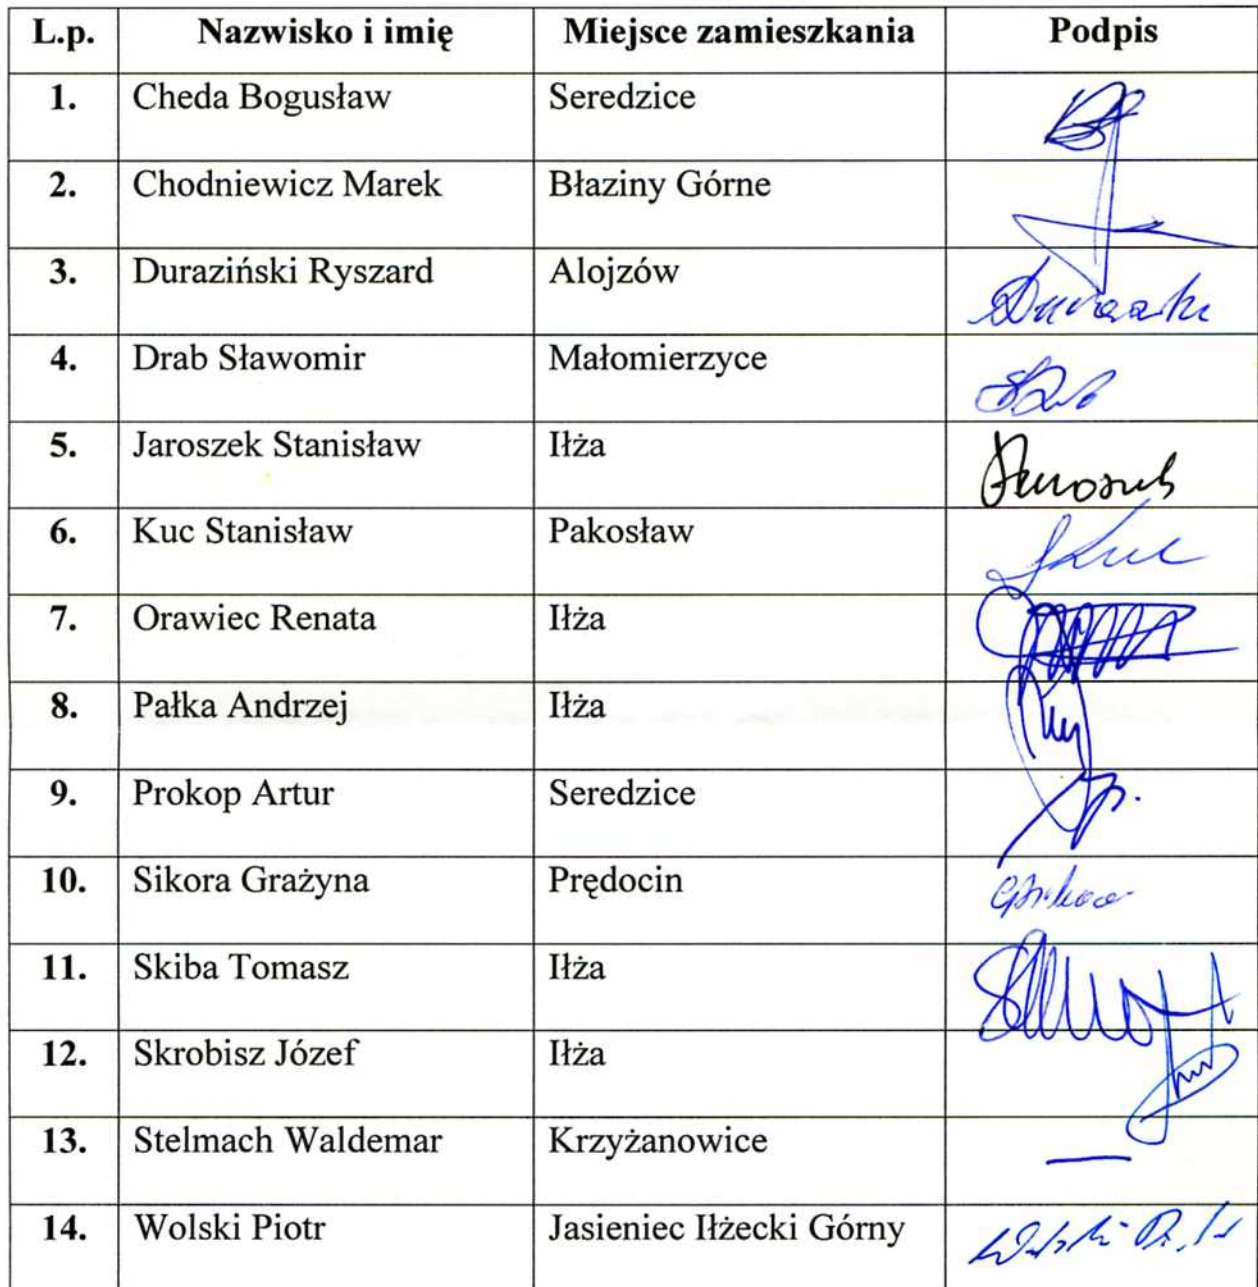 L.p. Nazwisko i imię Miejsce zamieszkania Podpis
1. Cheda Bogusław Seredzice
2. Chodniewicz Marek Błaziny Górne
3. Duraziński Ryszard Alojzów
4. Drab Sławomir Małomierzyce
5. Jaroszek Stanisław Iłża
6. Kuc Stanisław Pakosław SKuc
7. Orawiec Renata Iłża
8. Pałka Andrzej Iłża
9. Prokop Artur Seredzice
10. Sikora Grażyna Prędocin
11. Skiba Tomasz Iłża
12. Skrobisz Józef Iłża
13. Stelmach Waldemar Krzyżanowice —
14. Wolski Piotr Jasieniec Iłżecki Górny Wolski Piotr